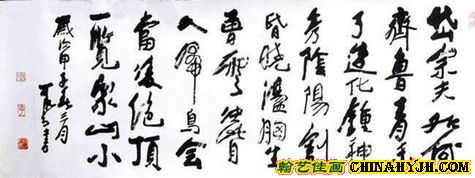 岱宗夫如何
齊魯青未
了造化鍾神
秀陰陽割
昏曉盪胸生
曾雲決眥
入歸鳥會
當凌絕頂
一覽衆山小
歲次甲子春三月
翰艺佳画
CHINAHYJH.COM